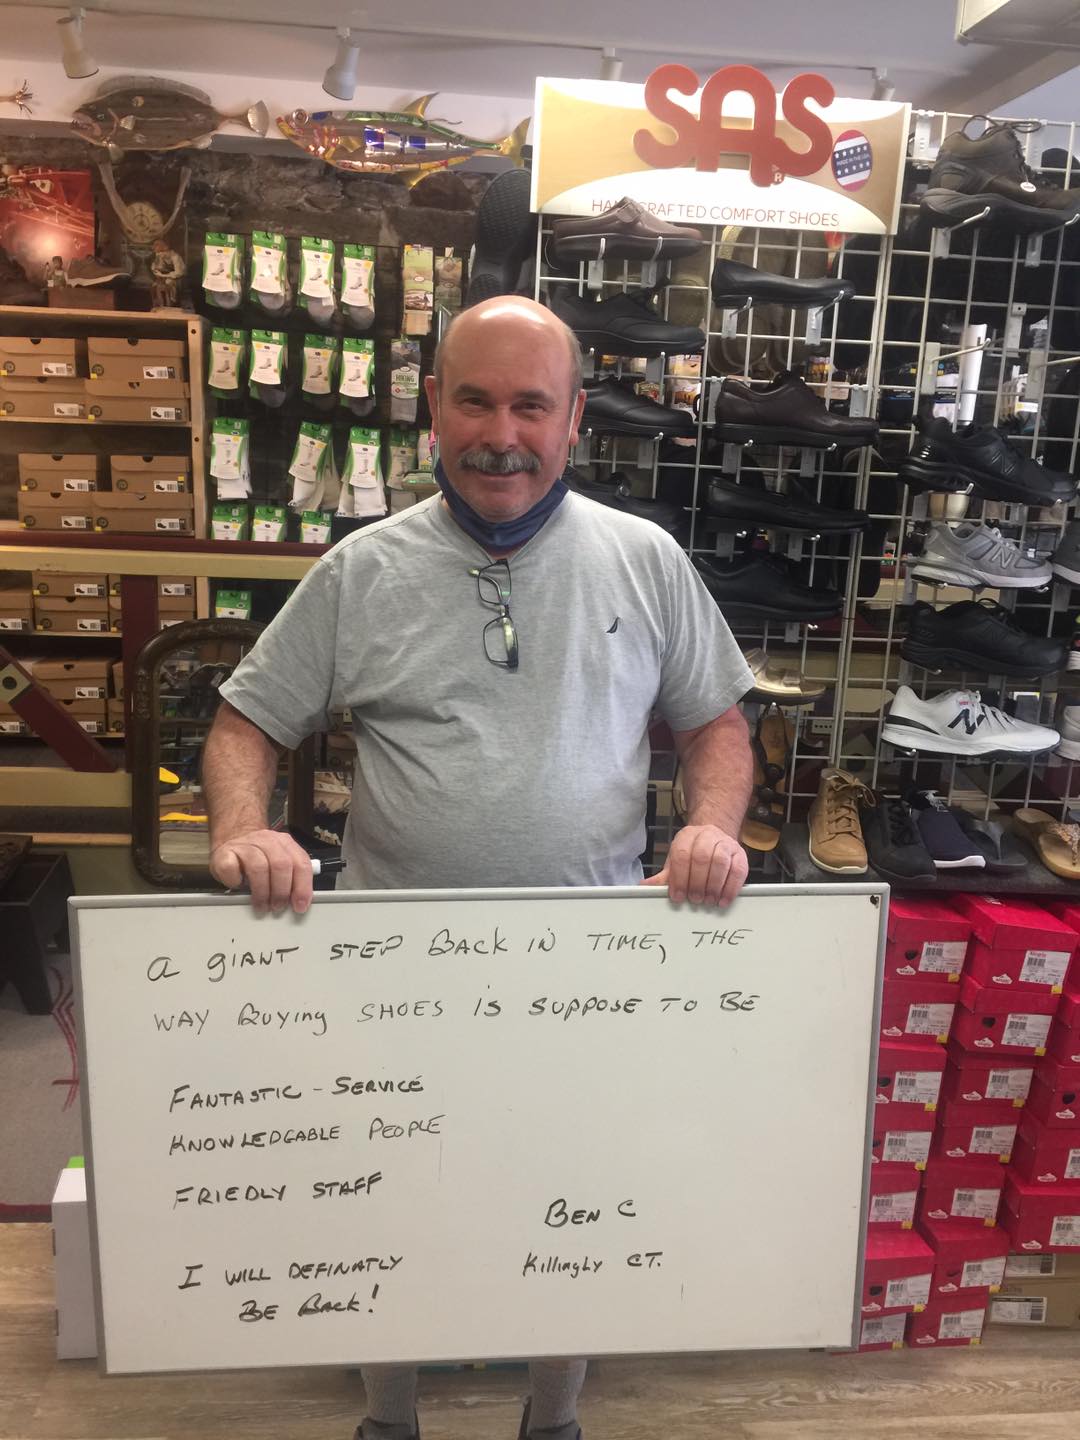 SAS
®
MADE IN THE USA
HANDCRAFTED COMFORT SHOES
HIKING
A GIANT STEP BACK IN TIME, THE
WAY BUYING SHOES IS SUPPOSE TO BE
FANTASTIC - SERVICE
KNOWLEDGABLE PEOPLE
FRIEDLY STAFF
I WILL DEFINATLY
BE BACK!
BEN C
Killingly CT.